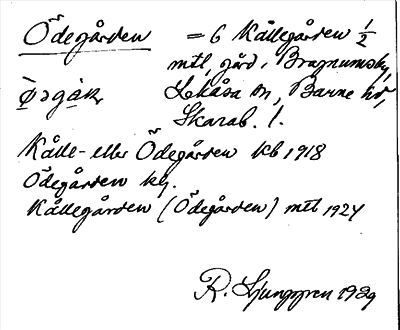 Ödegården = 6 Kållegården 1/2
mtl, gård, Bragnumsby,
Lekåsa sn, Barne hd,
Skarab. l.
Kålle- eller Ödegården kb 1918
Ödegården kg.
Kållegården (Ödegården) mtl 1924
R. Ljunggren 1939